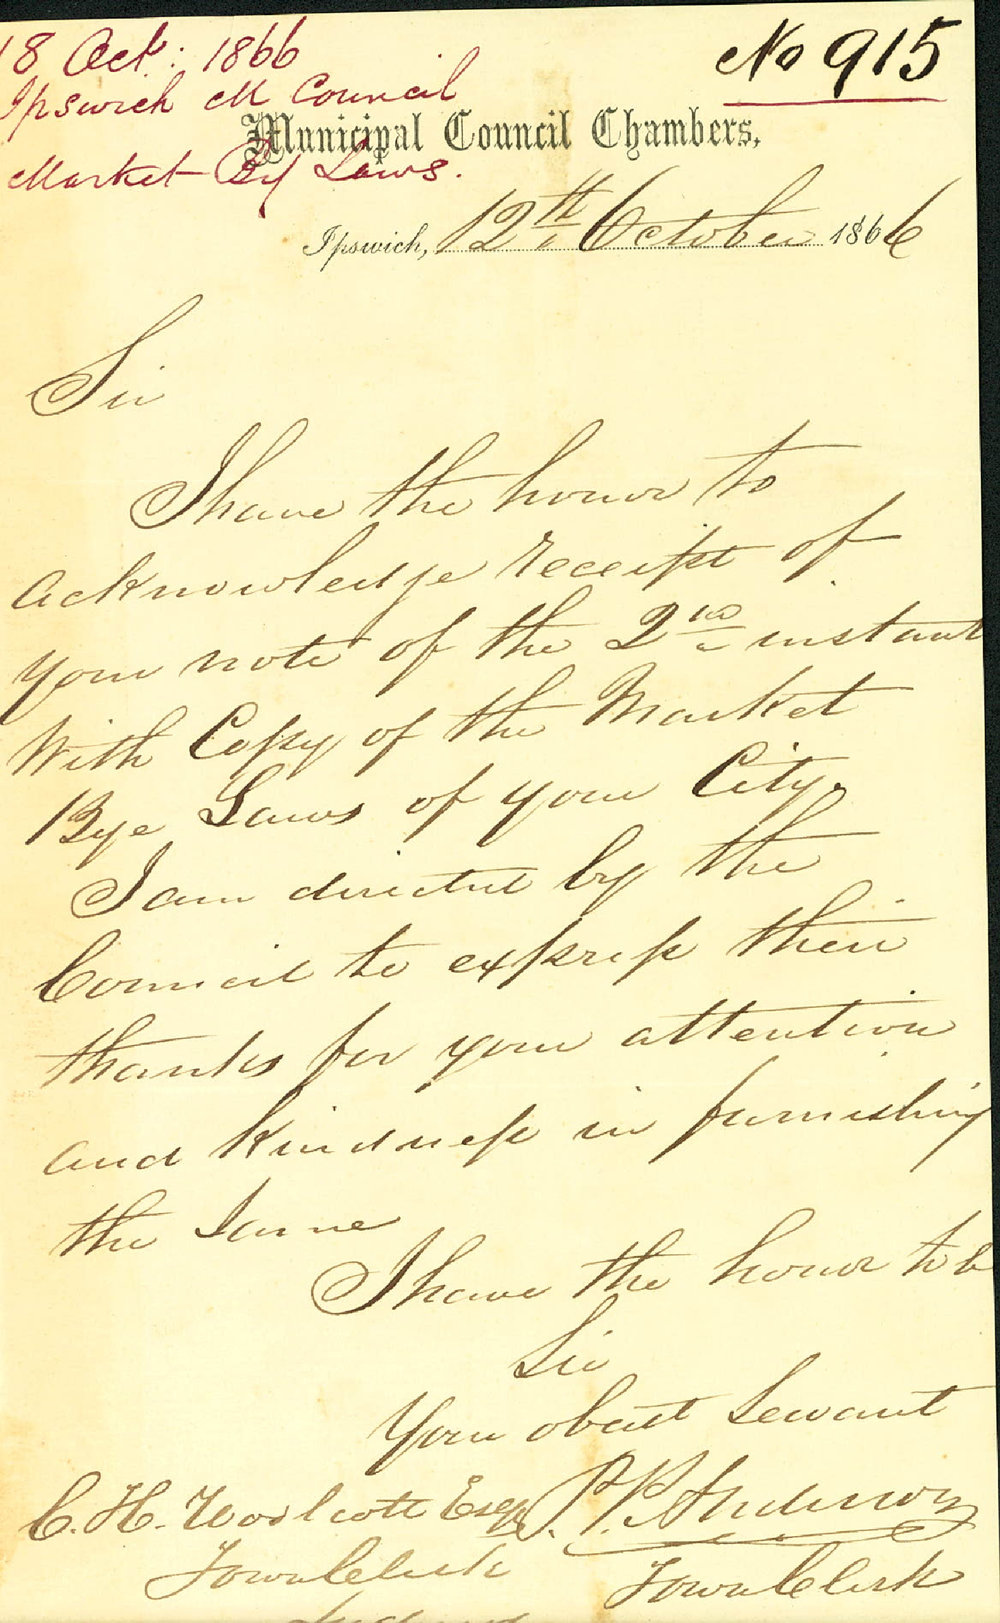 18 Oct: 1866
Ipswich M Council
Market By Laws.
No 915
Municipal Council Chambers,
Ipswich, 12th October 1866
Sir
I have the honor to
acknowledge receipt of
your note of the 2nd instant
With Copy of the Market
Bye Laws of your City.
I am directed by the
Council to express their
thanks for your attention
and kindness in furnishing
the same
I have the honor to be
Sir
Your obedt Servant
Anderson
Town Clerk
C. H. Woolcott Esqr
Town Clerk
Sydney